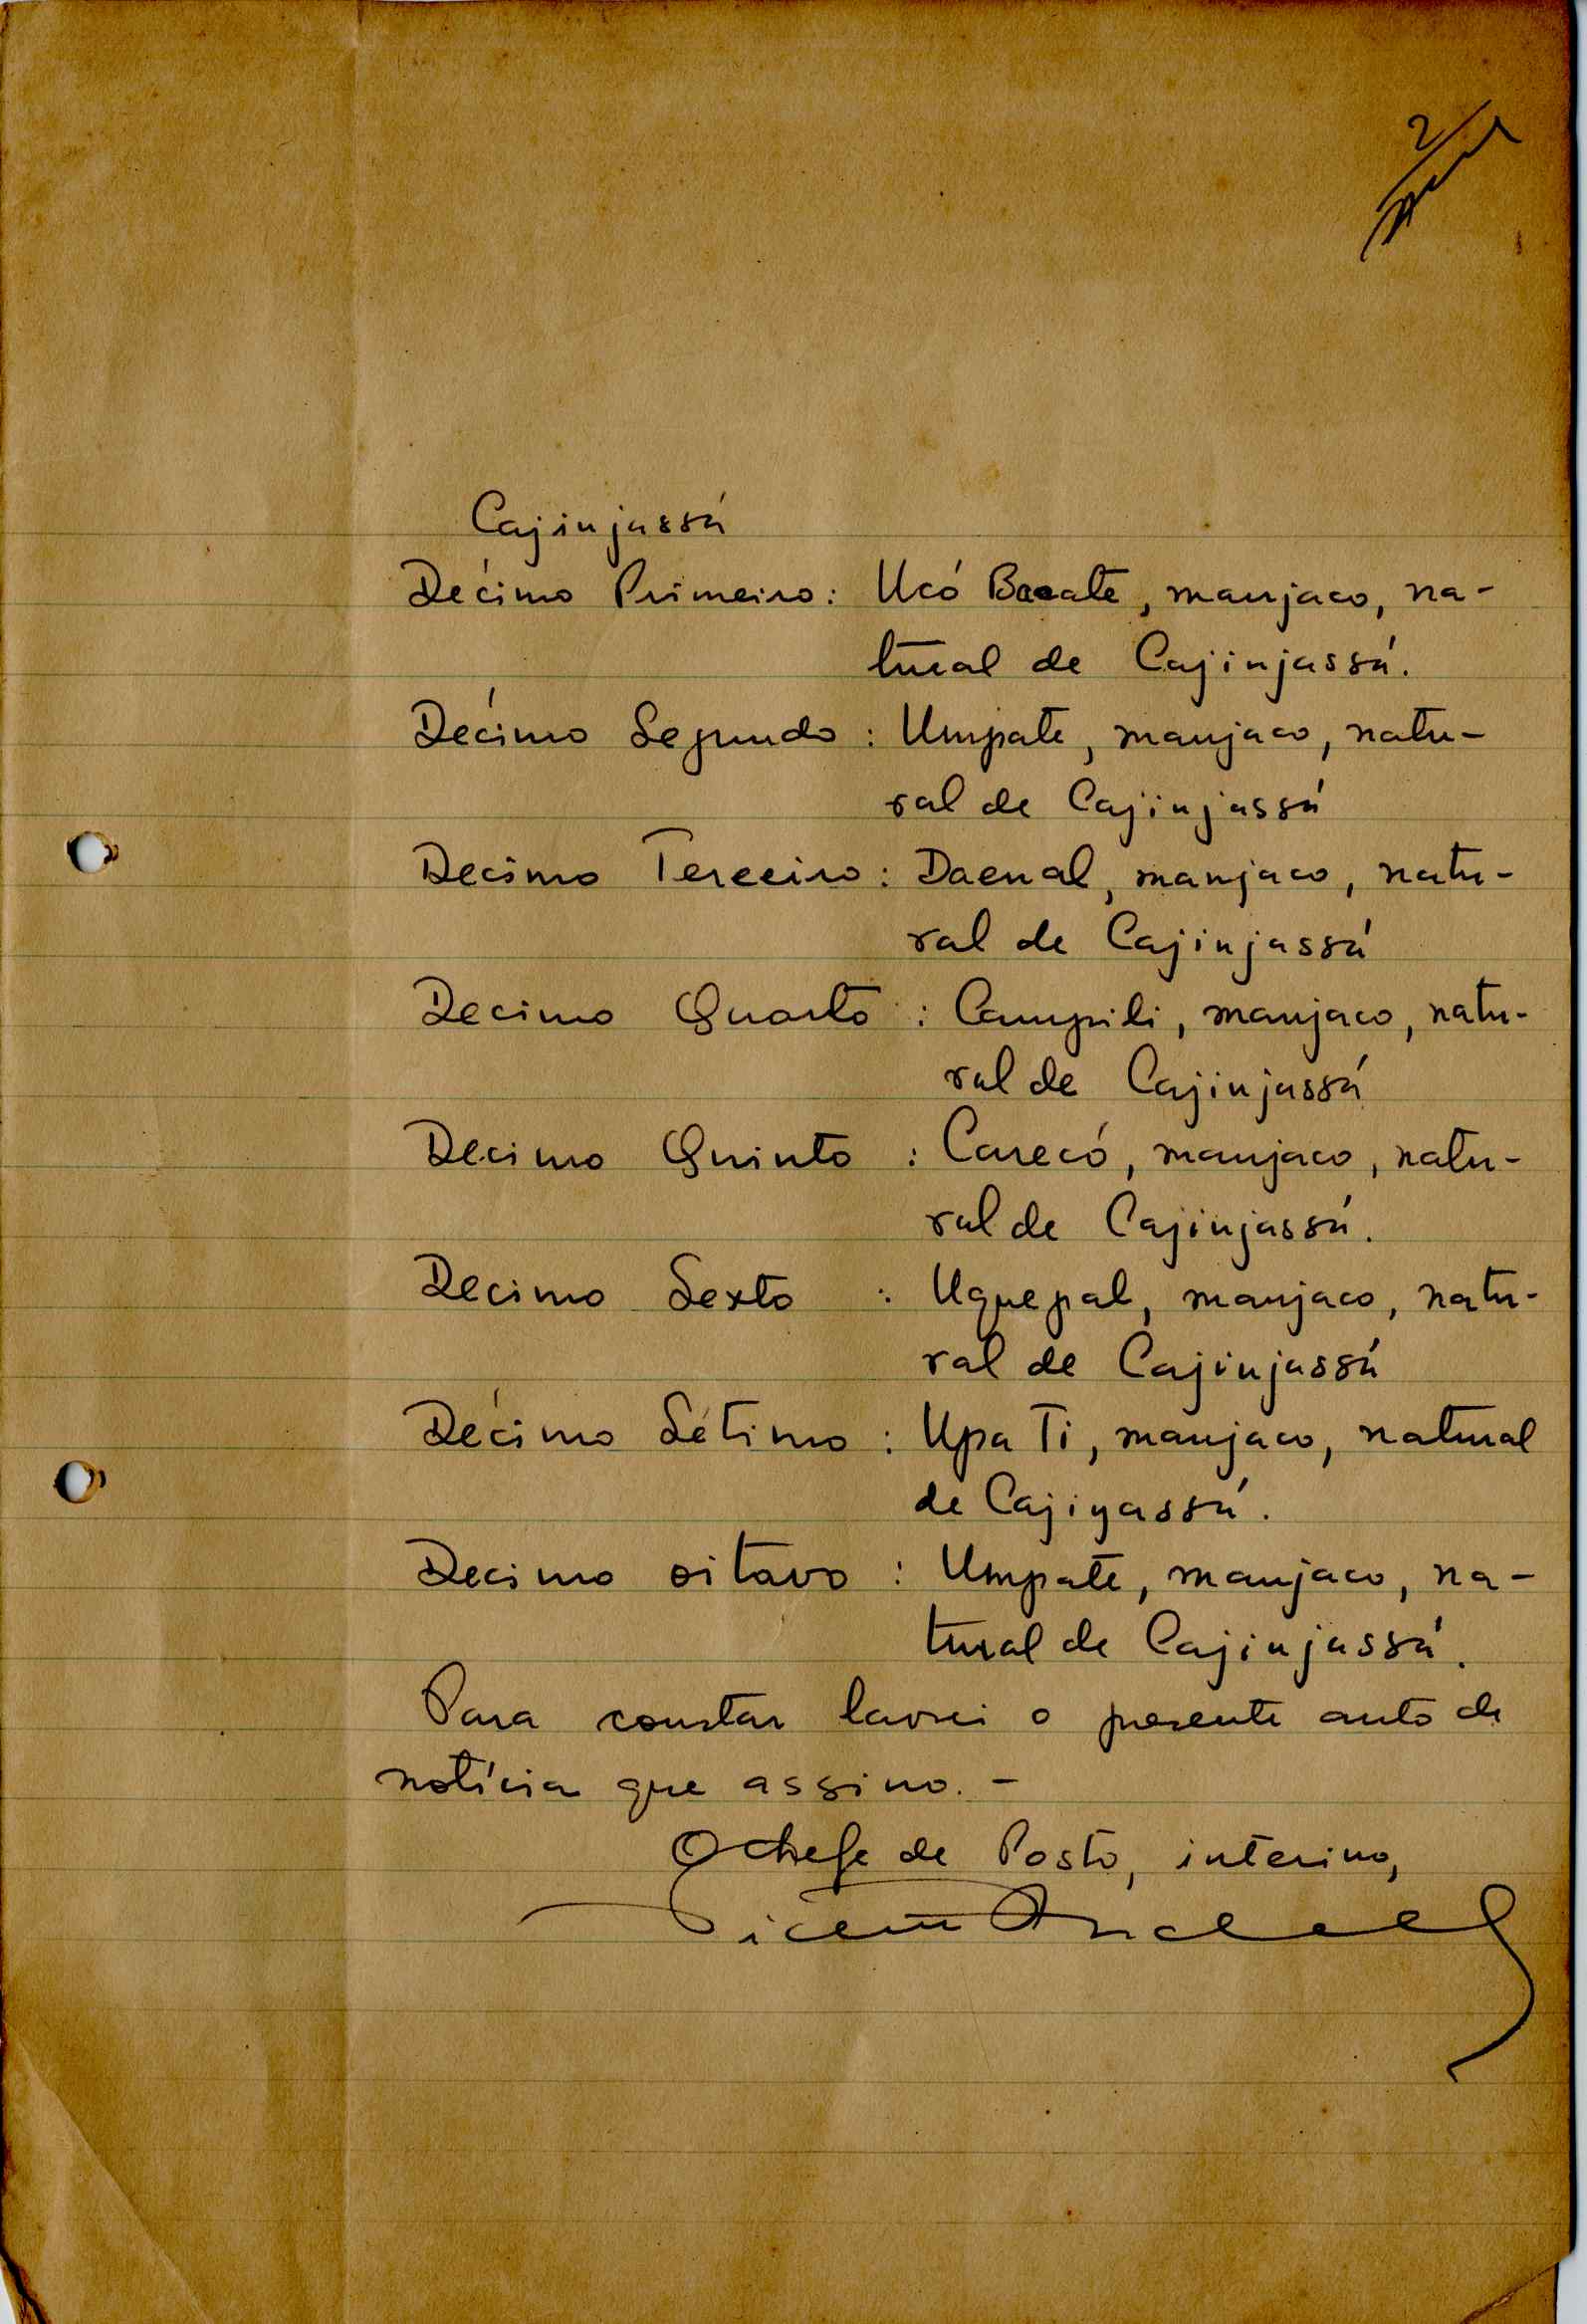 2
Cajinjassá
Décimo Primeiro: Ucó Bacate, manjaco, na-
tural de Cajinjassá.
Décimo Segundo : Umpate, manjaco, natu-
ral de Cajinjassá
Decimo Terceiro : Daenal, manjaco, natu-
ral de Cajinjassá
Decimo Quarto : Campili, manjaco, natu-
ral de Cajinjassá
Decimo Quinto : Carecó, manjaco, natu-
ral de Cajinjassá.
Decimo Sexto : Uquepal, manjaco, natu-
ral de Cajinjassá
Décimo Sétimo : Upa Ti, manjaco, natural
de Cajiyassá.
Decimo oitavo : Umpate, manjaco, na-
tural de Cajinjassá.
Para constar lavrei o presente auto de
notícia que assino. -
O Chefe de Posto, interino,